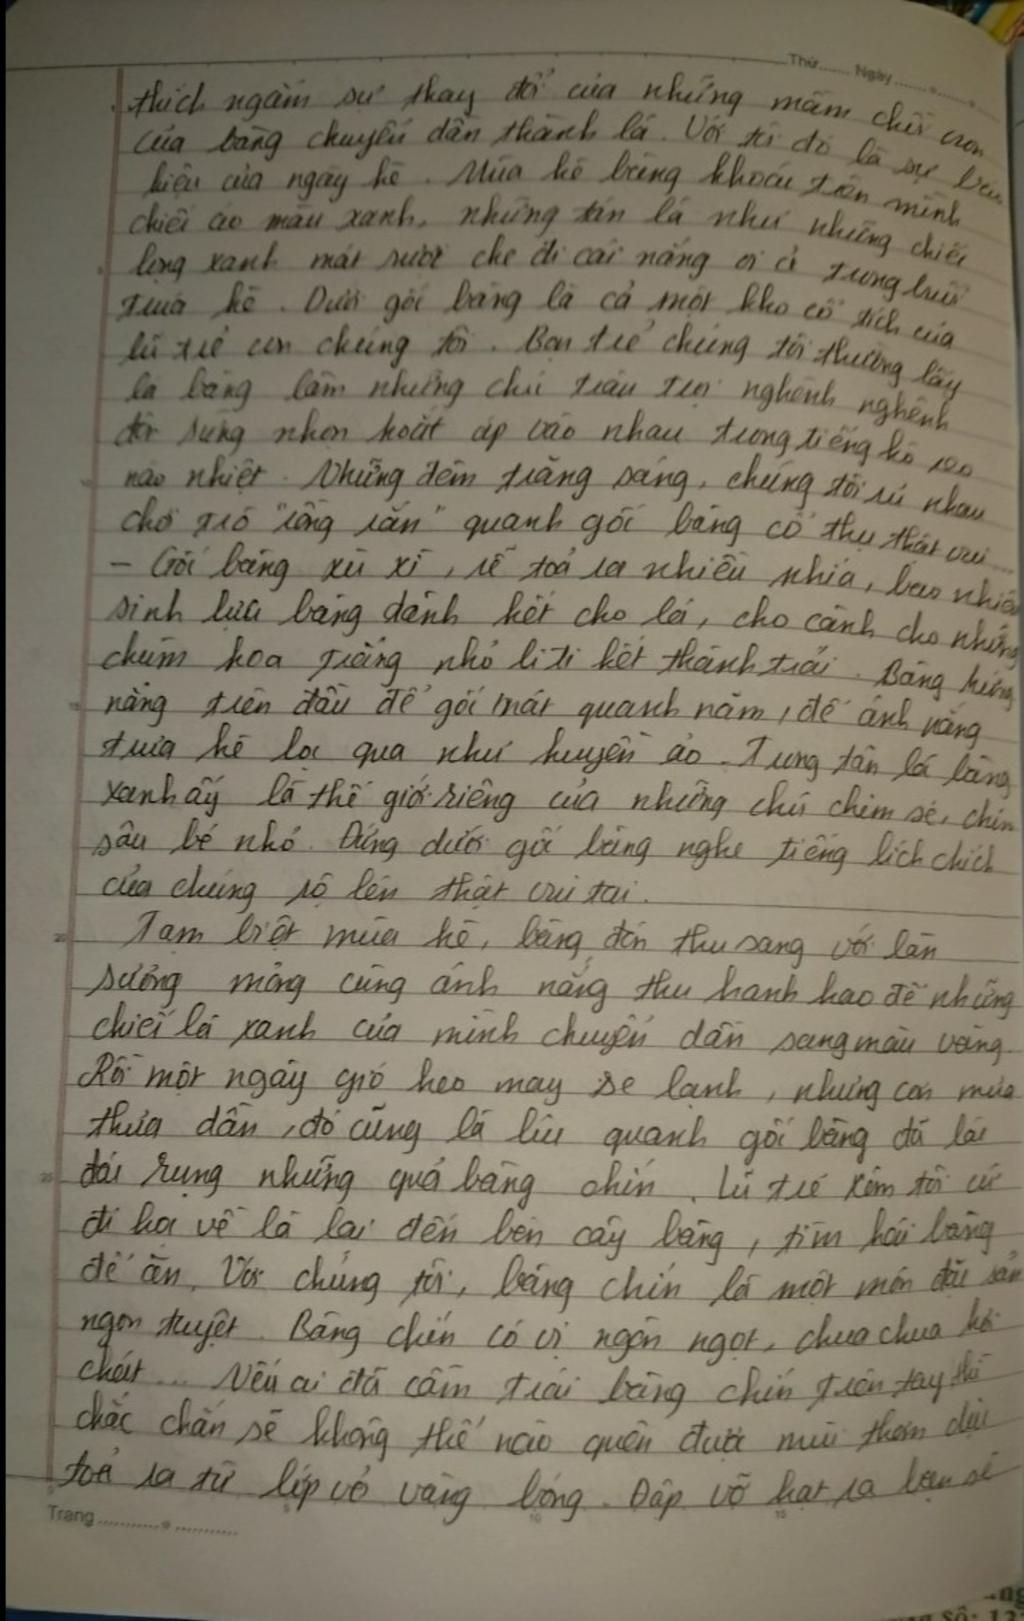 Thứ...... Ngày......
thích ngắm sự thay đổi của những mầm chồi non
của bàng chuyển dần thành lá. Với tôi đó là sự báo
hiệu của ngày hè. Mùa hè bàng khoác trên mình
chiếc áo màu xanh, những tán lá như những chiếc
lọng xanh mát rượi che đi cái nắng oi ả trong buổi
trưa hè. Dưới gốc bàng là cả một kho cổ tích của
lũ trẻ con chúng tôi. Bọn trẻ chúng tôi thường lấy
lá bàng làm những chú trâu trọi nghênh nghênh
đôi sừng nhọn hoắt áp vào nhau trong tiếng hò reo
náo nhiệt. Những đêm trăng sáng, chúng tôi rủ nhau
chơi trò "rồng rắn" quanh gốc bàng cổ thụ thật vui...
- Gốc bàng xù xì, rễ toả ra nhiều nhía, bao nhiêu
sinh lực bàng dành hết cho lá, cho cành cho những
chùm hoa trắng nhỏ li ti kết thành trái. Bàng hứng
nắng trên đầu để gốc mát quanh năm, để ánh nắng
trưa hè lọc qua như huyền ảo. Trong tán lá bàng
xanh ấy là thế giới riêng của những chú chim sẻ, chim
sâu bé nhỏ. Đứng dưới gốc bàng nghe tiếng lích chích
của chúng rộ lên thật vui tai.
Tạm biệt mùa hè, bàng đón thu sang với làn
sương mỏng cùng ánh nắng thu hanh hao để những
chiếc lá xanh của mình chuyển dần sang màu vàng.
Rồi một ngày gió heo may se lạnh, những cơn mưa
thưa dần, đó cũng là lúc quanh gốc bàng đã lác
đác rụng những quả bàng chín. Lũ trẻ xóm tôi cứ
đi học về là lại đến bên cây bàng, tìm hái bàng
để ăn. Với chúng tôi, bàng chín là một món đặc sản
ngon tuyệt. Bàng chín có vị ngòn ngọt, chua chua hơi
chát... Nếu ai đã cầm trái bàng chín trên tay thì
chắc chắn sẽ không thể nào quên được mùi thơm dịu
toả ra từ lớp vỏ vàng bóng. Đập vỡ hạt ra bạn sẽ
Trang......